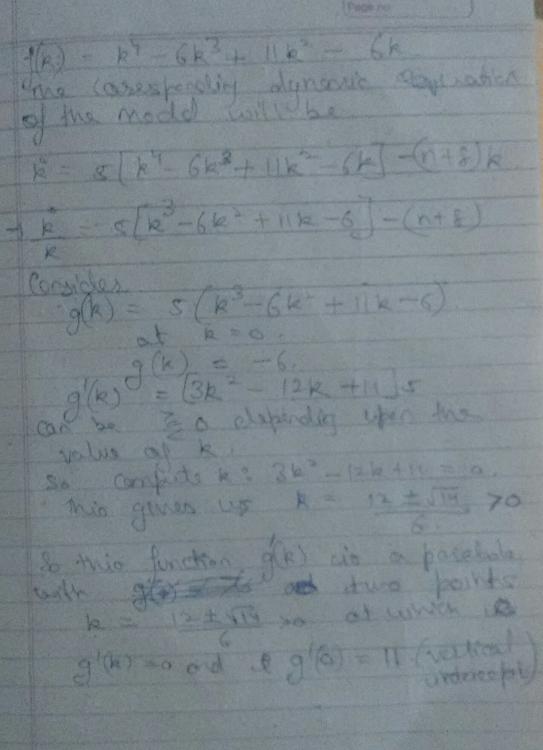 Page no
f(k) = k⁴ - 6k³ + 11k² - 6k
The corespending dynamic equation
of the model will be
k̇ = s[k⁴ - 6k³ + 11k² - 6k] - (n+δ)k
→ k̇/k = s[k³ - 6k² + 11k - 6] - (n+δ)
Consider
g(k) = s(k³ - 6k² + 11k - 6)
at k = 0.
g(k) = -6.
g'(k) = [3k² - 12k + 11]s
can be ≥ ≤ 0 depending upon the
value of k.
So compute k: 3k² - 12k + 11 = 0
This gives us k = (12 ± √14)/6 > 0
So this function g'(k) is a parabola
with two points
k = (12 ± √14)/6 >0 at which
g'(k) = 0 and g'(0) = 11 (vertical
intercept)